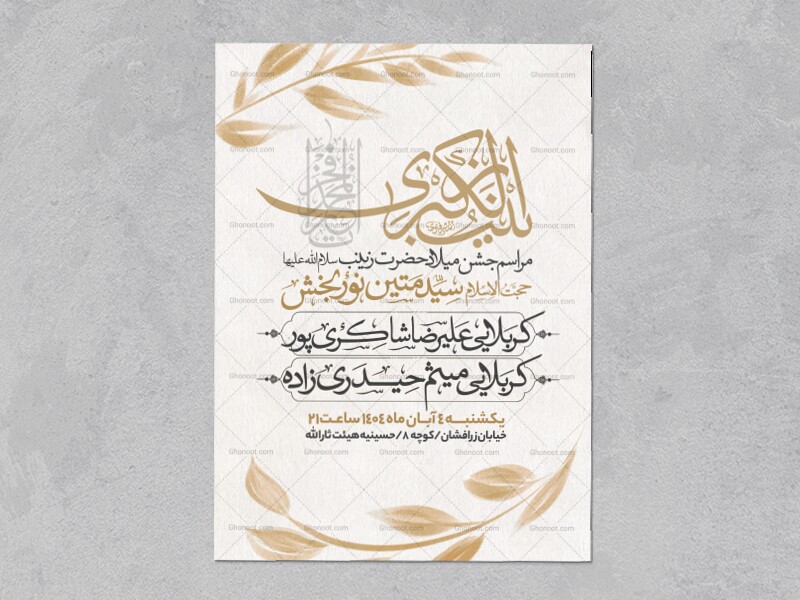 زینب الکبری
مراسم جشن میلاد حضرت زینب سلام الله علیها
حجت الاسلام سید متین نوربخش
کربلایی علیرضا شاکری پور
کربلایی میثم حیدری زاده
یکشنبه ٤ آبان ماه ١٤٠٤ ساعت ٢١
خیابان زرافشان / کوچه ٨ / حسینیه هیئت ثارالله
Ghonoot.com